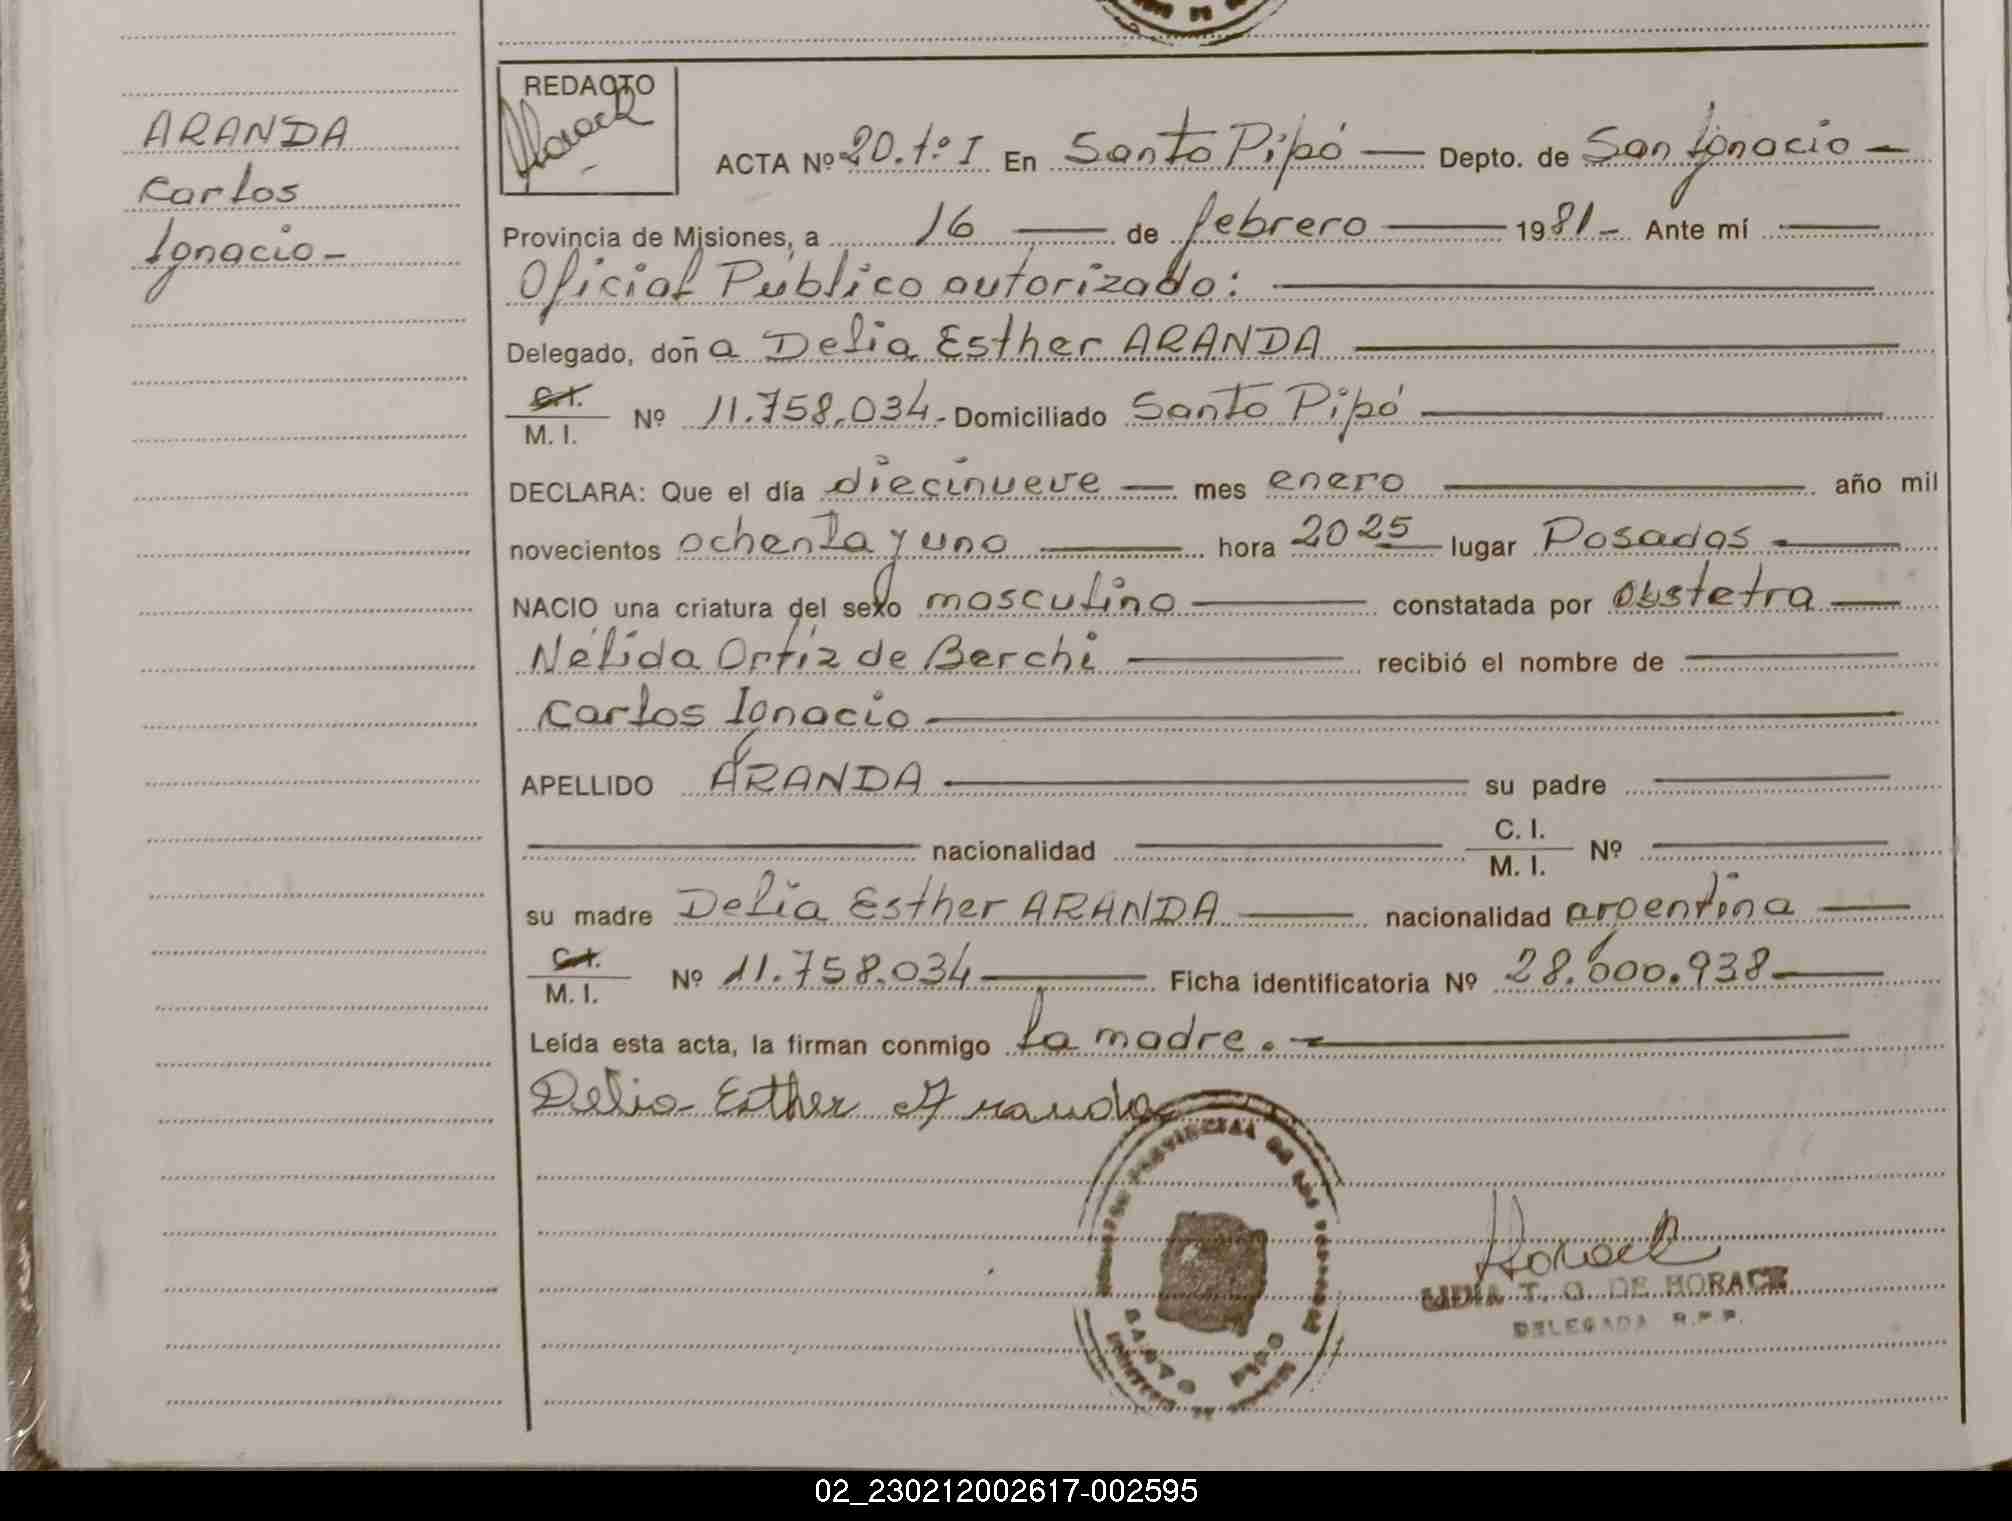 ARANDA
Carlos
Ignacio-
REDACTO
ACTA Nº 20. tº I En Santo Pipó — Depto. de San Ignacio —
Provincia de Misiones, a 16 — de febrero — 1981 - Ante mí —
Oficial Público autorizado: —
Delegado, doña Delia Esther ARANDA —
C.I.
M. I. Nº 11.758.034.- Domiciliado Santo Pipó —
DECLARA: Que el día diecinueve — mes enero — año mil
novecientos ochenta y uno — hora 20 25 lugar Posadas —
NACIO una criatura del sexo masculino — constatada por obstetra —
Nélida Ortiz de Berchi — recibió el nombre de —
Carlos Ignacio —
APELLIDO ARANDA — su padre —
— nacionalidad — C. I. Nº —
M. I.
su madre Delia Esther ARANDA — nacionalidad argentina —
C.I.
M. I. Nº 11.758.034 — Ficha identificatoria Nº 28.600.938 —
Leída esta acta, la firman conmigo la madre. —
Delia Esther Aranda
PROVINCIAL DE LAS PERSONAS
SANTO PIPO
Horace
LIDIA T. G. DE HORACE
DELEGADA R.P.P.
02_230212002617-002595